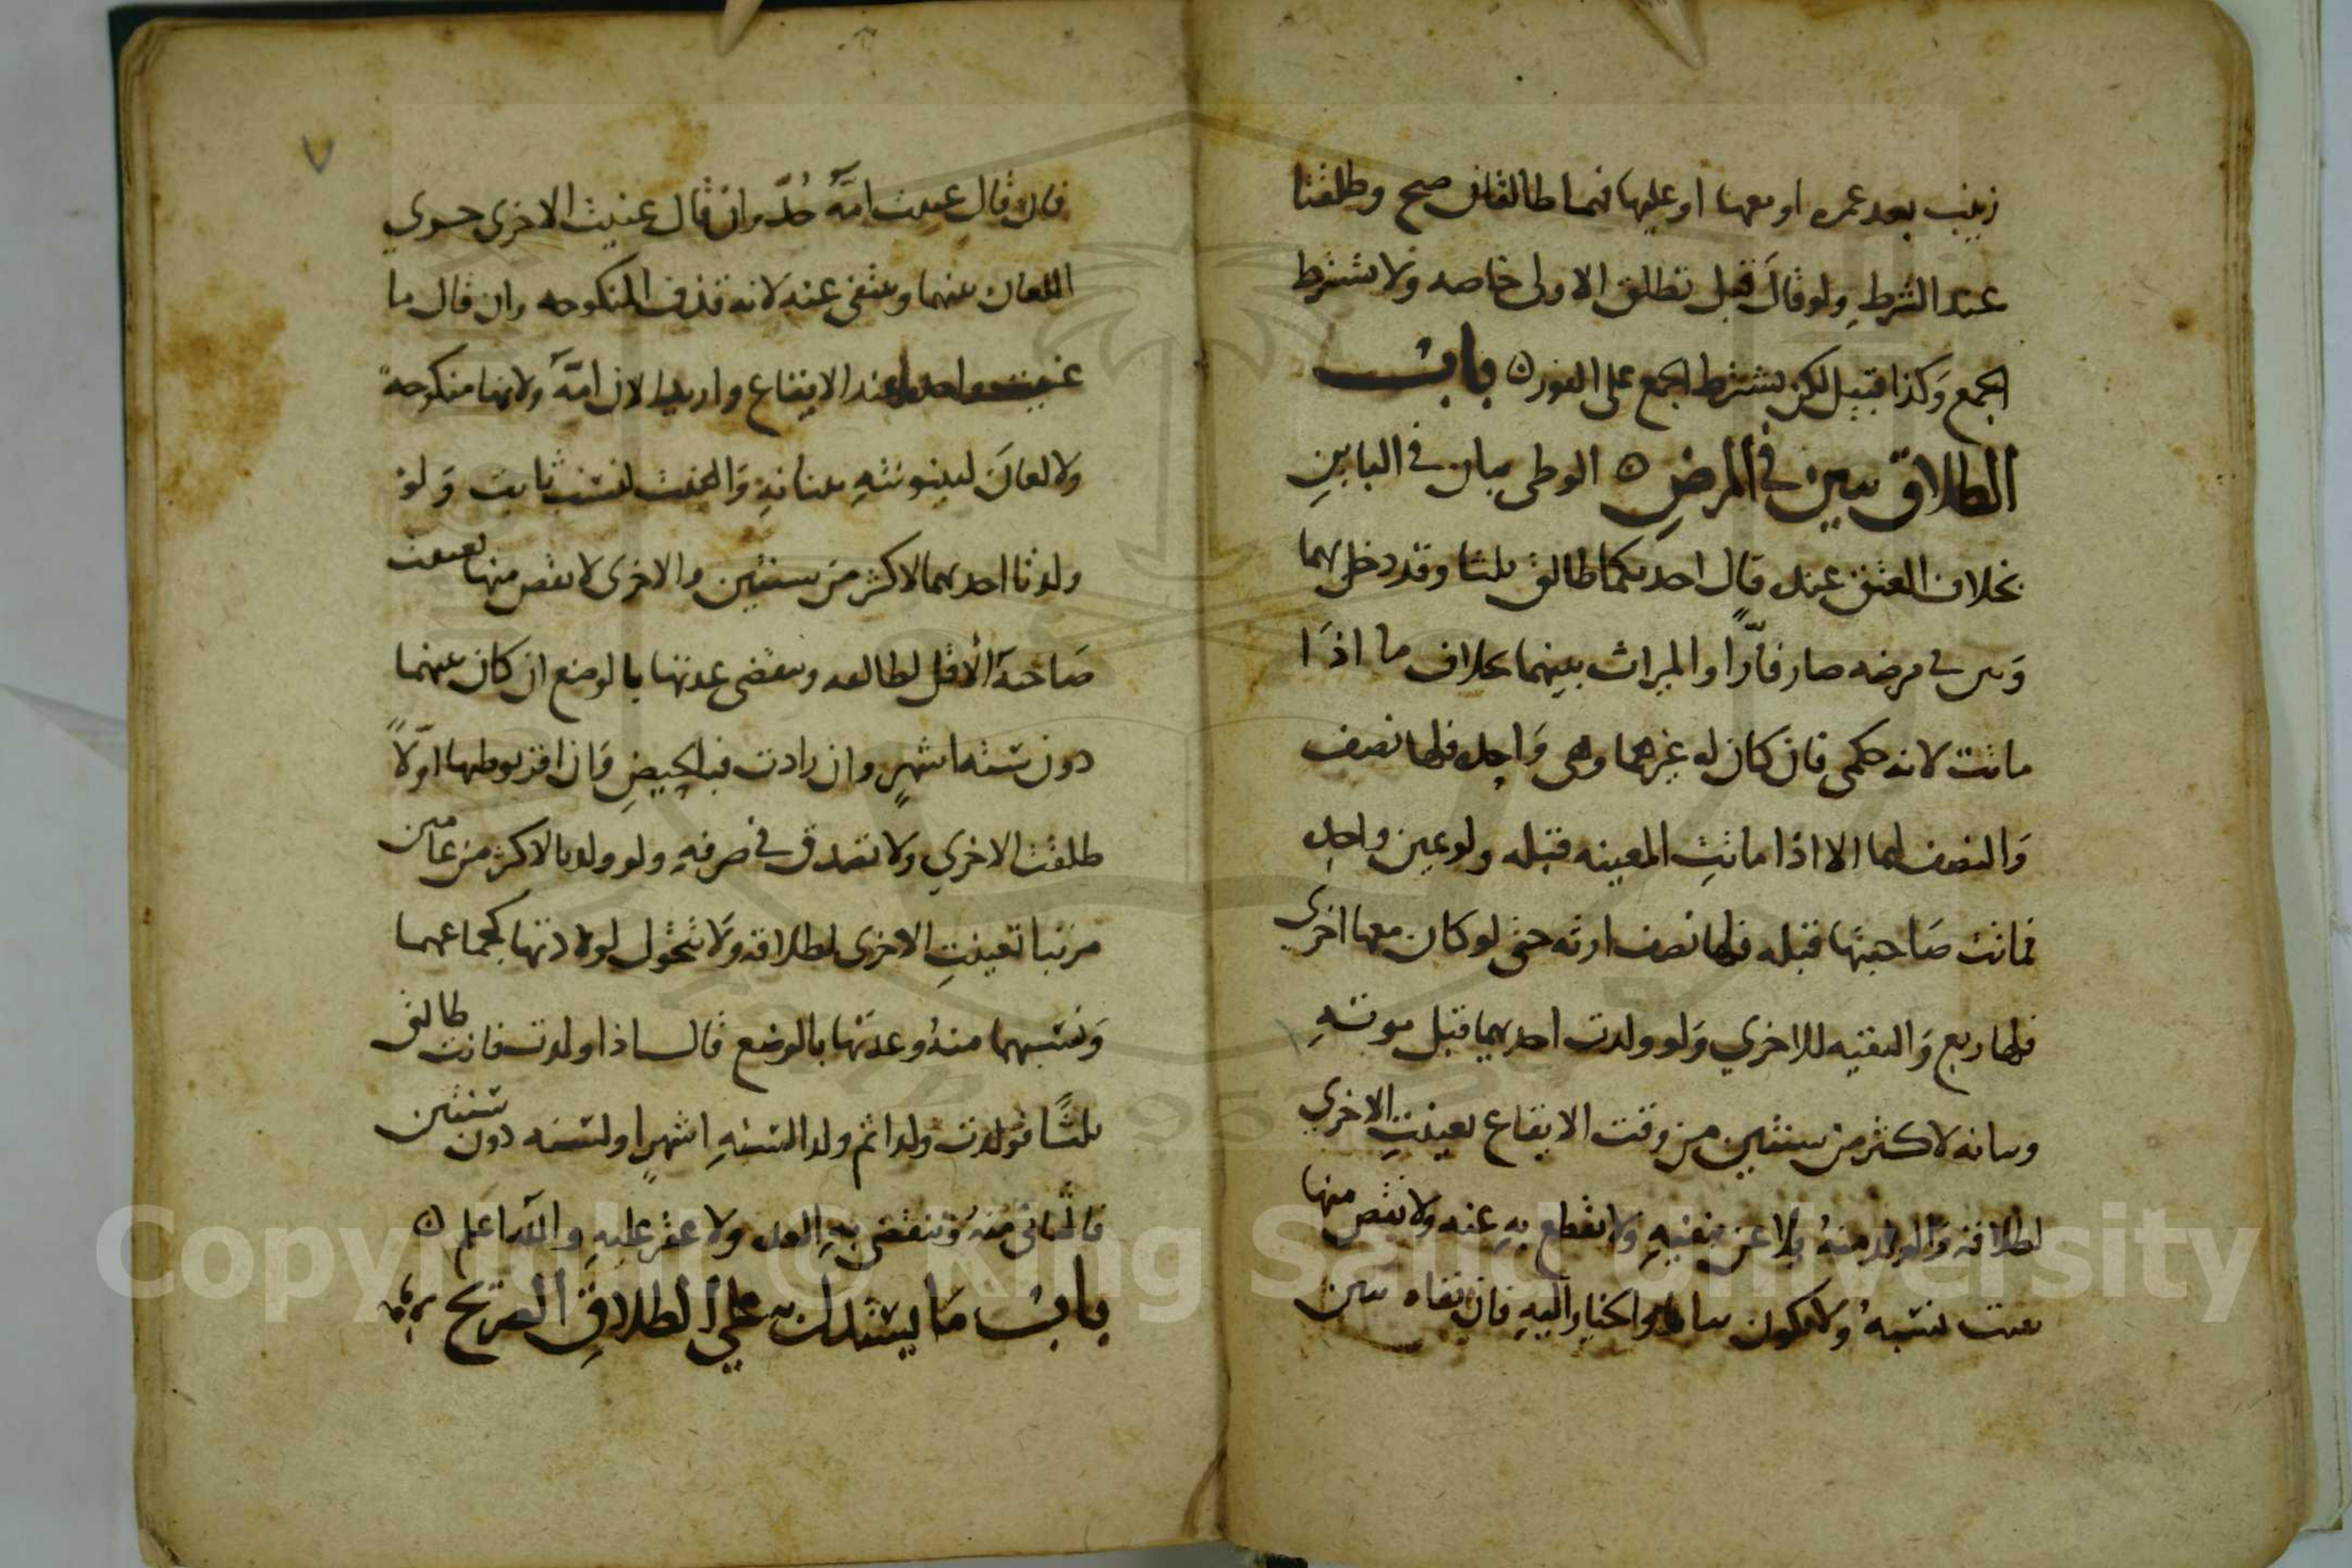 زينب بعد عمره او معها او عليها فهما طالقان صح وطلقتا
عند الشرط ولو قال قبل تطلق الاولى خاصه ولا يشترط
الجمع وكذا قبيل لكن يشترط الجمع على الفور ٥ باب
الطلاق يبين في المرض ٥ الوطى بيان في البابين
بخلاف العتق عنده قال احديكما طالق ثلثا وقد دخل بهما
وبين في مرضه صار فارّا والميراث بينهما بخلاف ما اذا
ماتت لانه حكمي فان كان له غيرهما وهى واحده فلها نصف
والنصف لهما الا اذا ماتت المعينه قبله ولو عين واحده
فماتت صاحبتها قبله فلها نصف ارثه حتى لو كان معها اخرى
فلها ربع والبقيه للاخري ولو ولدت احديهما قبل موته
وبيانه لاكثر من سنتين من وقت الايقاع تعينت الاخري
لطلاقه والولد منه ولاعن بنفيه ولا يقطع به عنه ولا نقص منها
يثبت نسبه ولا يكون بيانا والخيار اليه فان نفاه يبين
فان قال عنيت امّه حُدّ وان قال عنيت الاخرى جرى
اللعان بينهما وينتفى عنه لانه قذف المنكوحه وان قال ما
عنيت واحده عند الايقاع واريد الان امّه ولانها منكوحة
ولا لعان لبينونته بيانه والنسب ثابت ولو
ولدتا احديهما لاكثر من سنتين والاخرى لا نقص منها تعينت
صاحبة الاقل لطالعه وينقضى عدتها بالوضع ان كان بينهما
دون ستة اشهر وان زادت فبالحيض وان اقر بوطيها اولاً
طلقت الاخري ولا تصدق في صرفه ولو ولدتا لاكثر من عامين
مرتبا تعينت الاخرى لطلاقه ولا تتحول لولادتها كجماعهما
ونسبهما منه وعدتها بالوضع قال اذا ولدت فانت طالق
ثلثاً فولدت ولدا ثم ولدا لستة اشهر او لسنه دون سنتين
فالثانى منه وتنقضى به العده ولا عقر عليه والله اعلم ٥
باب ما يستدل به على الطلاق الصريح